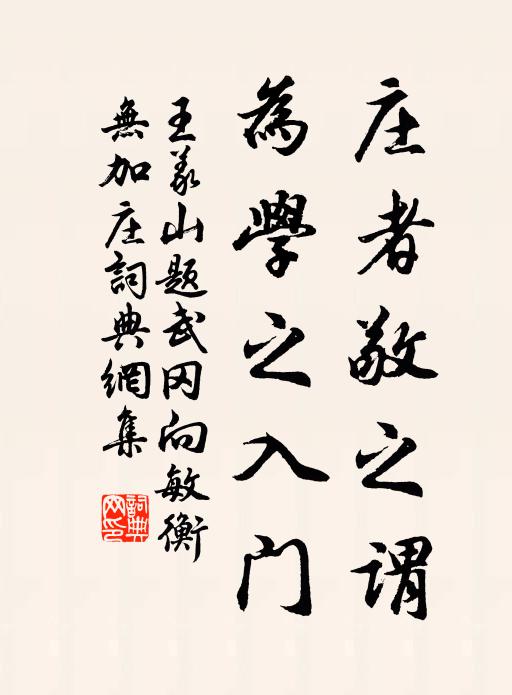 庄者敬之谓
為學之入门
王义山题武冈向敏衡
無加庄詞典網集
詞典网印